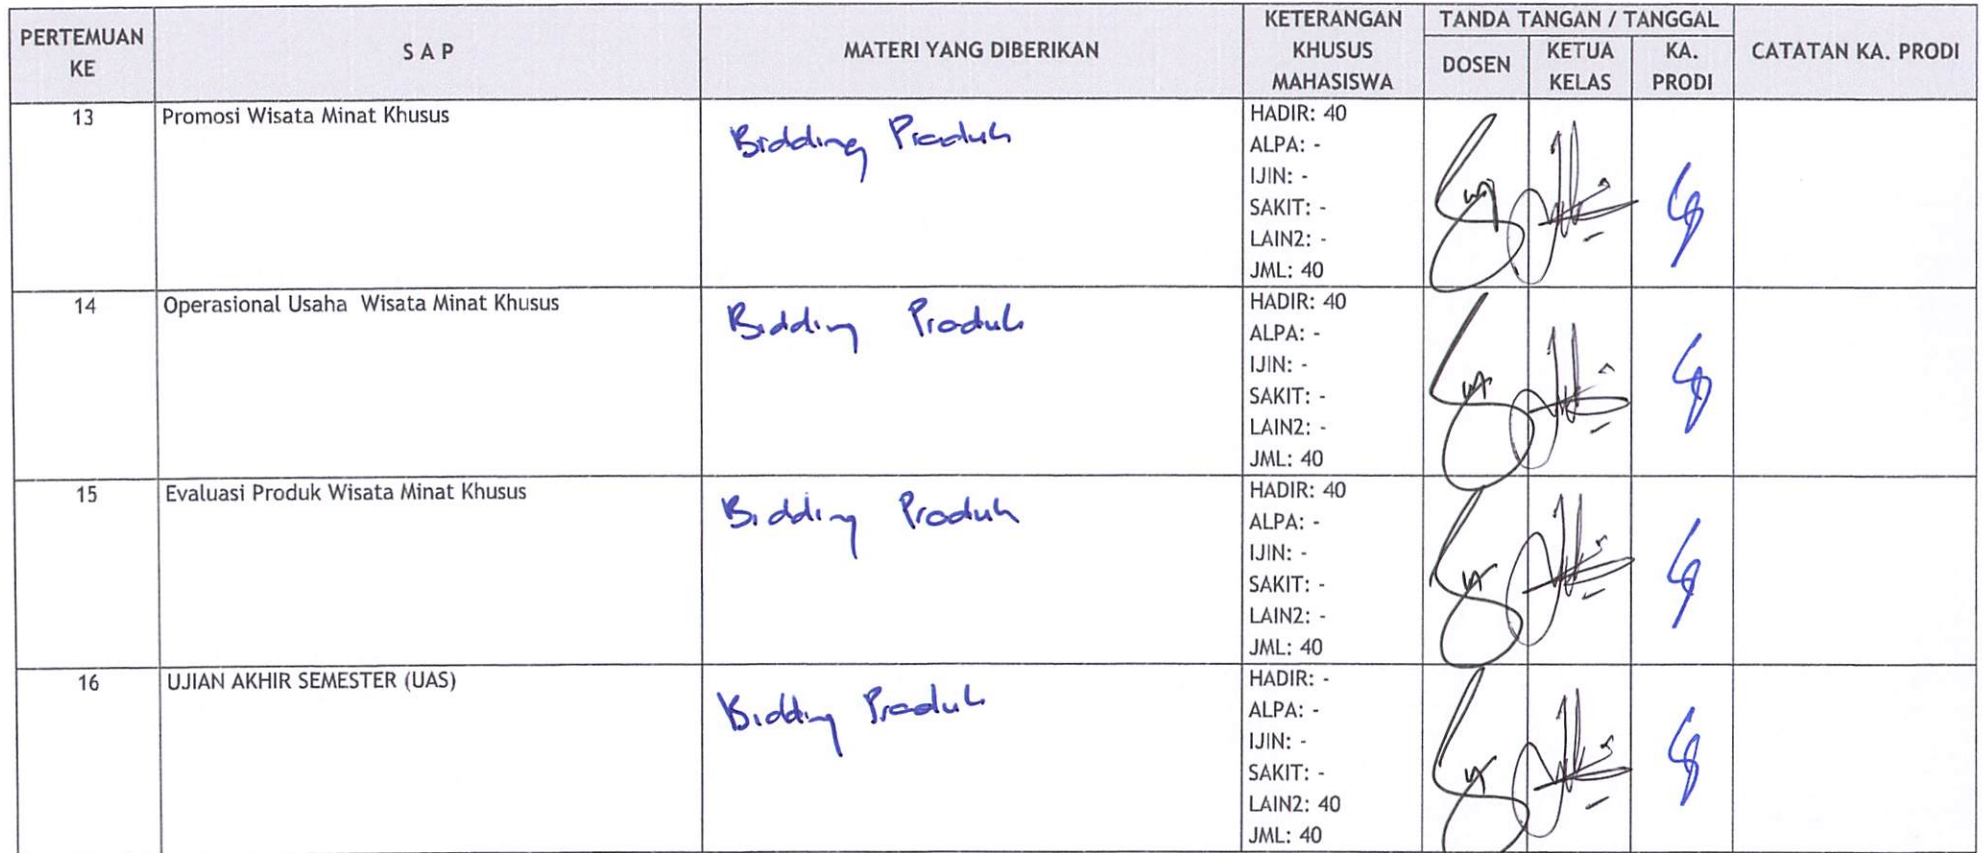 PERTEMUAN KE
S A P
MATERI YANG DIBERIKAN
KETERANGAN KHUSUS MAHASISWA
TANDA TANGAN / TANGGAL
DOSEN
KETUA KELAS
KA. PRODI
CATATAN KA. PRODI
13
Promosi Wisata Minat Khusus
Bidding Produk
HADIR: 40
ALPA: -
IJIN: -
SAKIT: -
LAIN2: -
JML: 40
14
Operasional Usaha Wisata Minat Khusus
Bidding Produk
HADIR: 40
ALPA: -
IJIN: -
SAKIT: -
LAIN2: -
JML: 40
15
Evaluasi Produk Wisata Minat Khusus
Bidding Produk
HADIR: 40
ALPA: -
IJIN: -
SAKIT: -
LAIN2: -
JML: 40
16
UJIAN AKHIR SEMESTER (UAS)
Bidding Produk
HADIR: -
ALPA: -
IJIN: -
SAKIT: -
LAIN2: 40
JML: 40